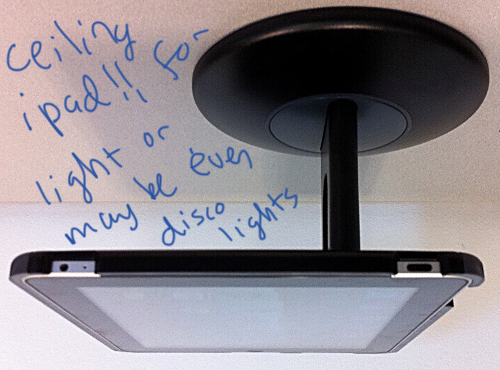 ceiling
ipad!! for
light or
may be even
disco
lights